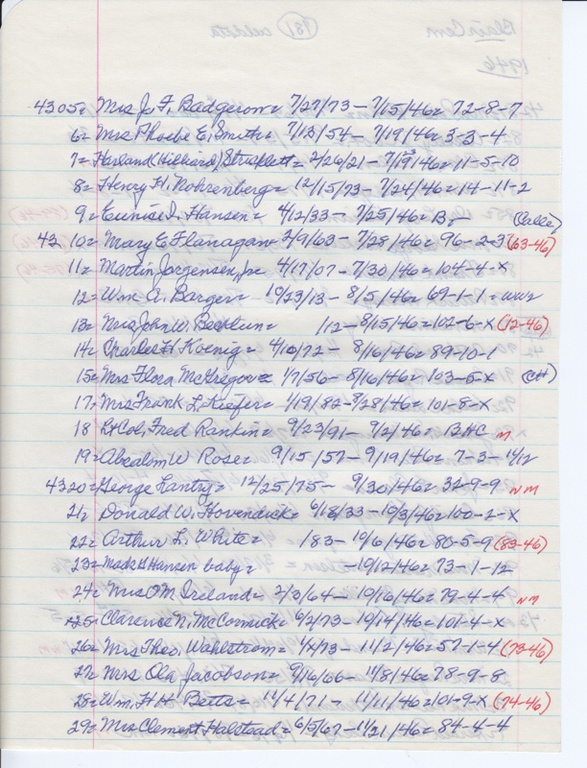 4305= Mrs J. F. Badgerow= 7/27/73 - 7/15/46= 72-8-7
6= Mrs Phoebe E. Smith= 7/13/54 - 7/19/46= 3-3-4
7= Harland (Hilliard) Strublett= 2/26/21 - 7/19/46= 11-5-10
8= Henry H. Rohrenberg= 12/15/73 - 7/24/46= 14-11-2
9= Eunise I. Hansen= 4/12/33 - 7/25/46= B
4310= Mary E Flanagan 2/9/63 - 7/28/46= 96-2-3 (63-46)
11= Martin Jorgensen, Jr 4/17/07 - 7/30/46= 104-4-X
12= Wm. A. Barger= 10/23/13 - 8/5/46= 69-1-1= WW2
13= Mrs John W. 112 - 8/15/46= 102-6-X (12-46)
14= Charles H Koenig= 4/10/72 - 8/16/46= 89-10-1
15= Mrs Flora McGregor= 1/7/56 - 8/16/46= 103-5-X
17= Mrs Frank L. Kiefer= 1/19/82 - 8/28/46= 101-8-X
18 Lt Col, Fred Rankin= 9/23/91 - 9/2/46= BHC M
19= Absalom W Rose= 9/15/57 - 9/19/46= 7-3-11/12
4320= George Lantry= 12/25/75 - 9/30/46= 32-9-9 NM
21= Donald W. Hovendick= 6/18/33 - 10/3/46= 100-2-X
22= Arthur L. White= 183 - 10/6/46= 80-5-9 (83-46)
23= Mads H Hansen baby= - 10/12/46= 73-1-12
24= Mrs O M Ireland= 2/3/64 - 10/16/46= 79-4-4 NM
25= Clarence N. McCormick= 6/2/73 - 10/14/46= 101-4-X
26= Mrs Theo. Wahlstrom= 4/X/73 - 11/2/46= 57-1-4 (73-46)
27= Mrs Ola Jacobson= 9/16/66 - 11/8/46= 78-9-8
28= Wm. H H. Betts= 11/4/71 - 11/11/46= 101-9-X (74-46)
29= Mrs Clement Halstead= 6/5/67 - 11/21/46= 84-4-4